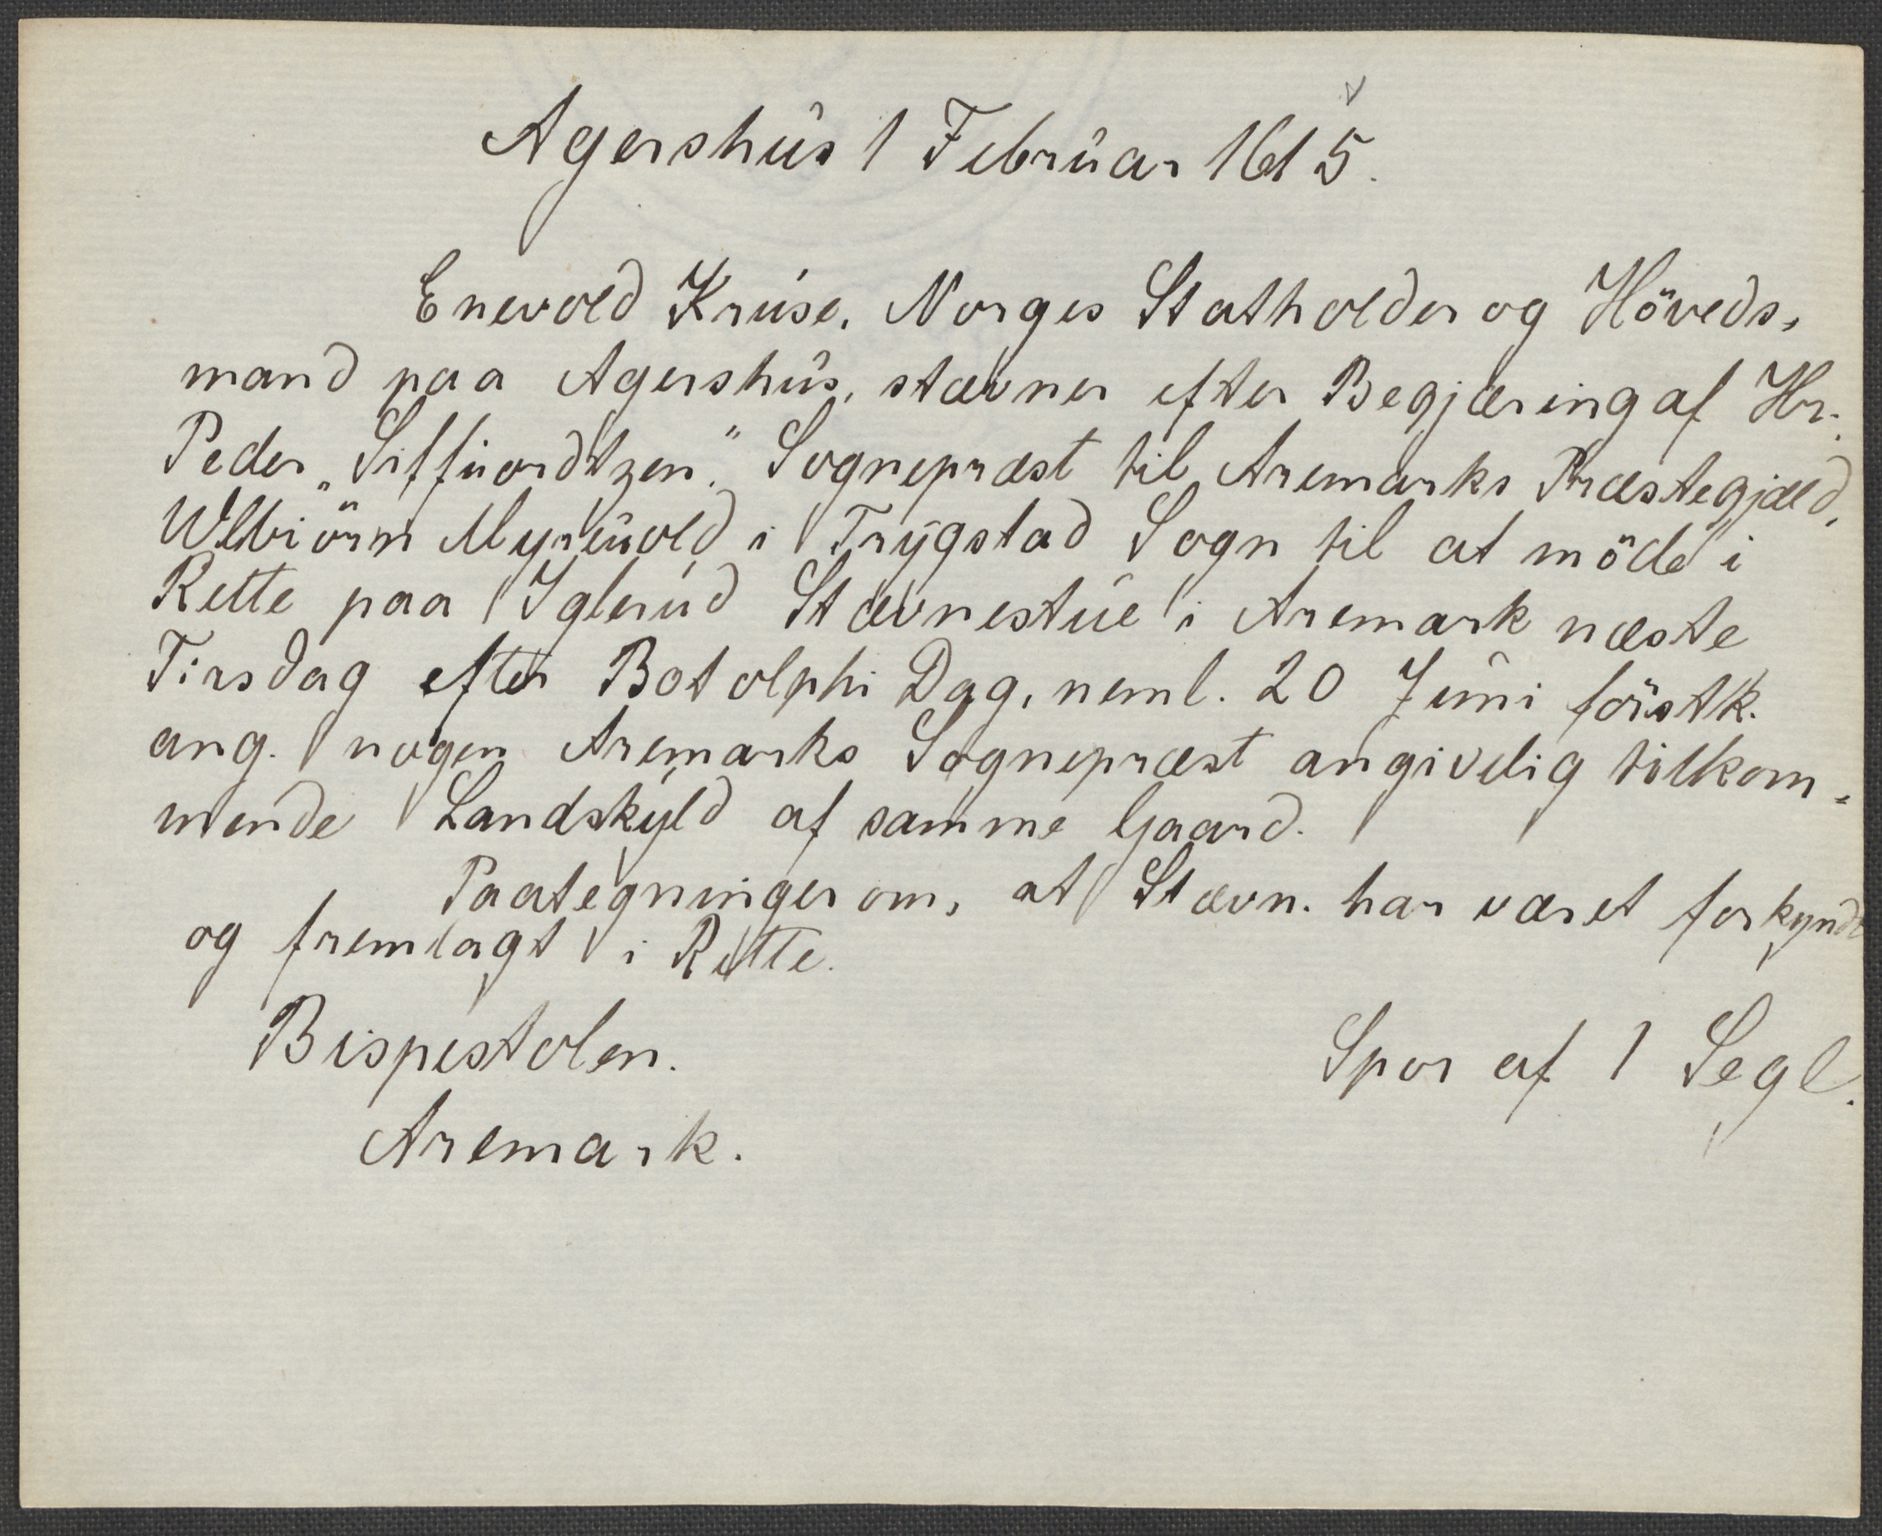 Agershus 1 Februar 1615.
Enevold Kruse, Norges Statholder og Höveds-
mand paa Agershus, stævner efter Begjæring af Hr.
Peder „Siffuordtzen," Sognepræst til Aremarks Præstegjæld,
Wlbiörn Myruold i Trygstad Sogn til at möde i
Rette paa Iglerud Stævnestue i Aremark næste
Tirsdag efter Botolphi Dag, neml. 20 Juni förstk.
ang. nogen Aremarks Sognepræst angivelig tilkom-
mende Landskyld af samme Gaard.
Paategninger om, at Stævn. har været forkyndt
og fremlagt i Rette.
Bispestolen.
Spor af 1 Segl.
Aremark.